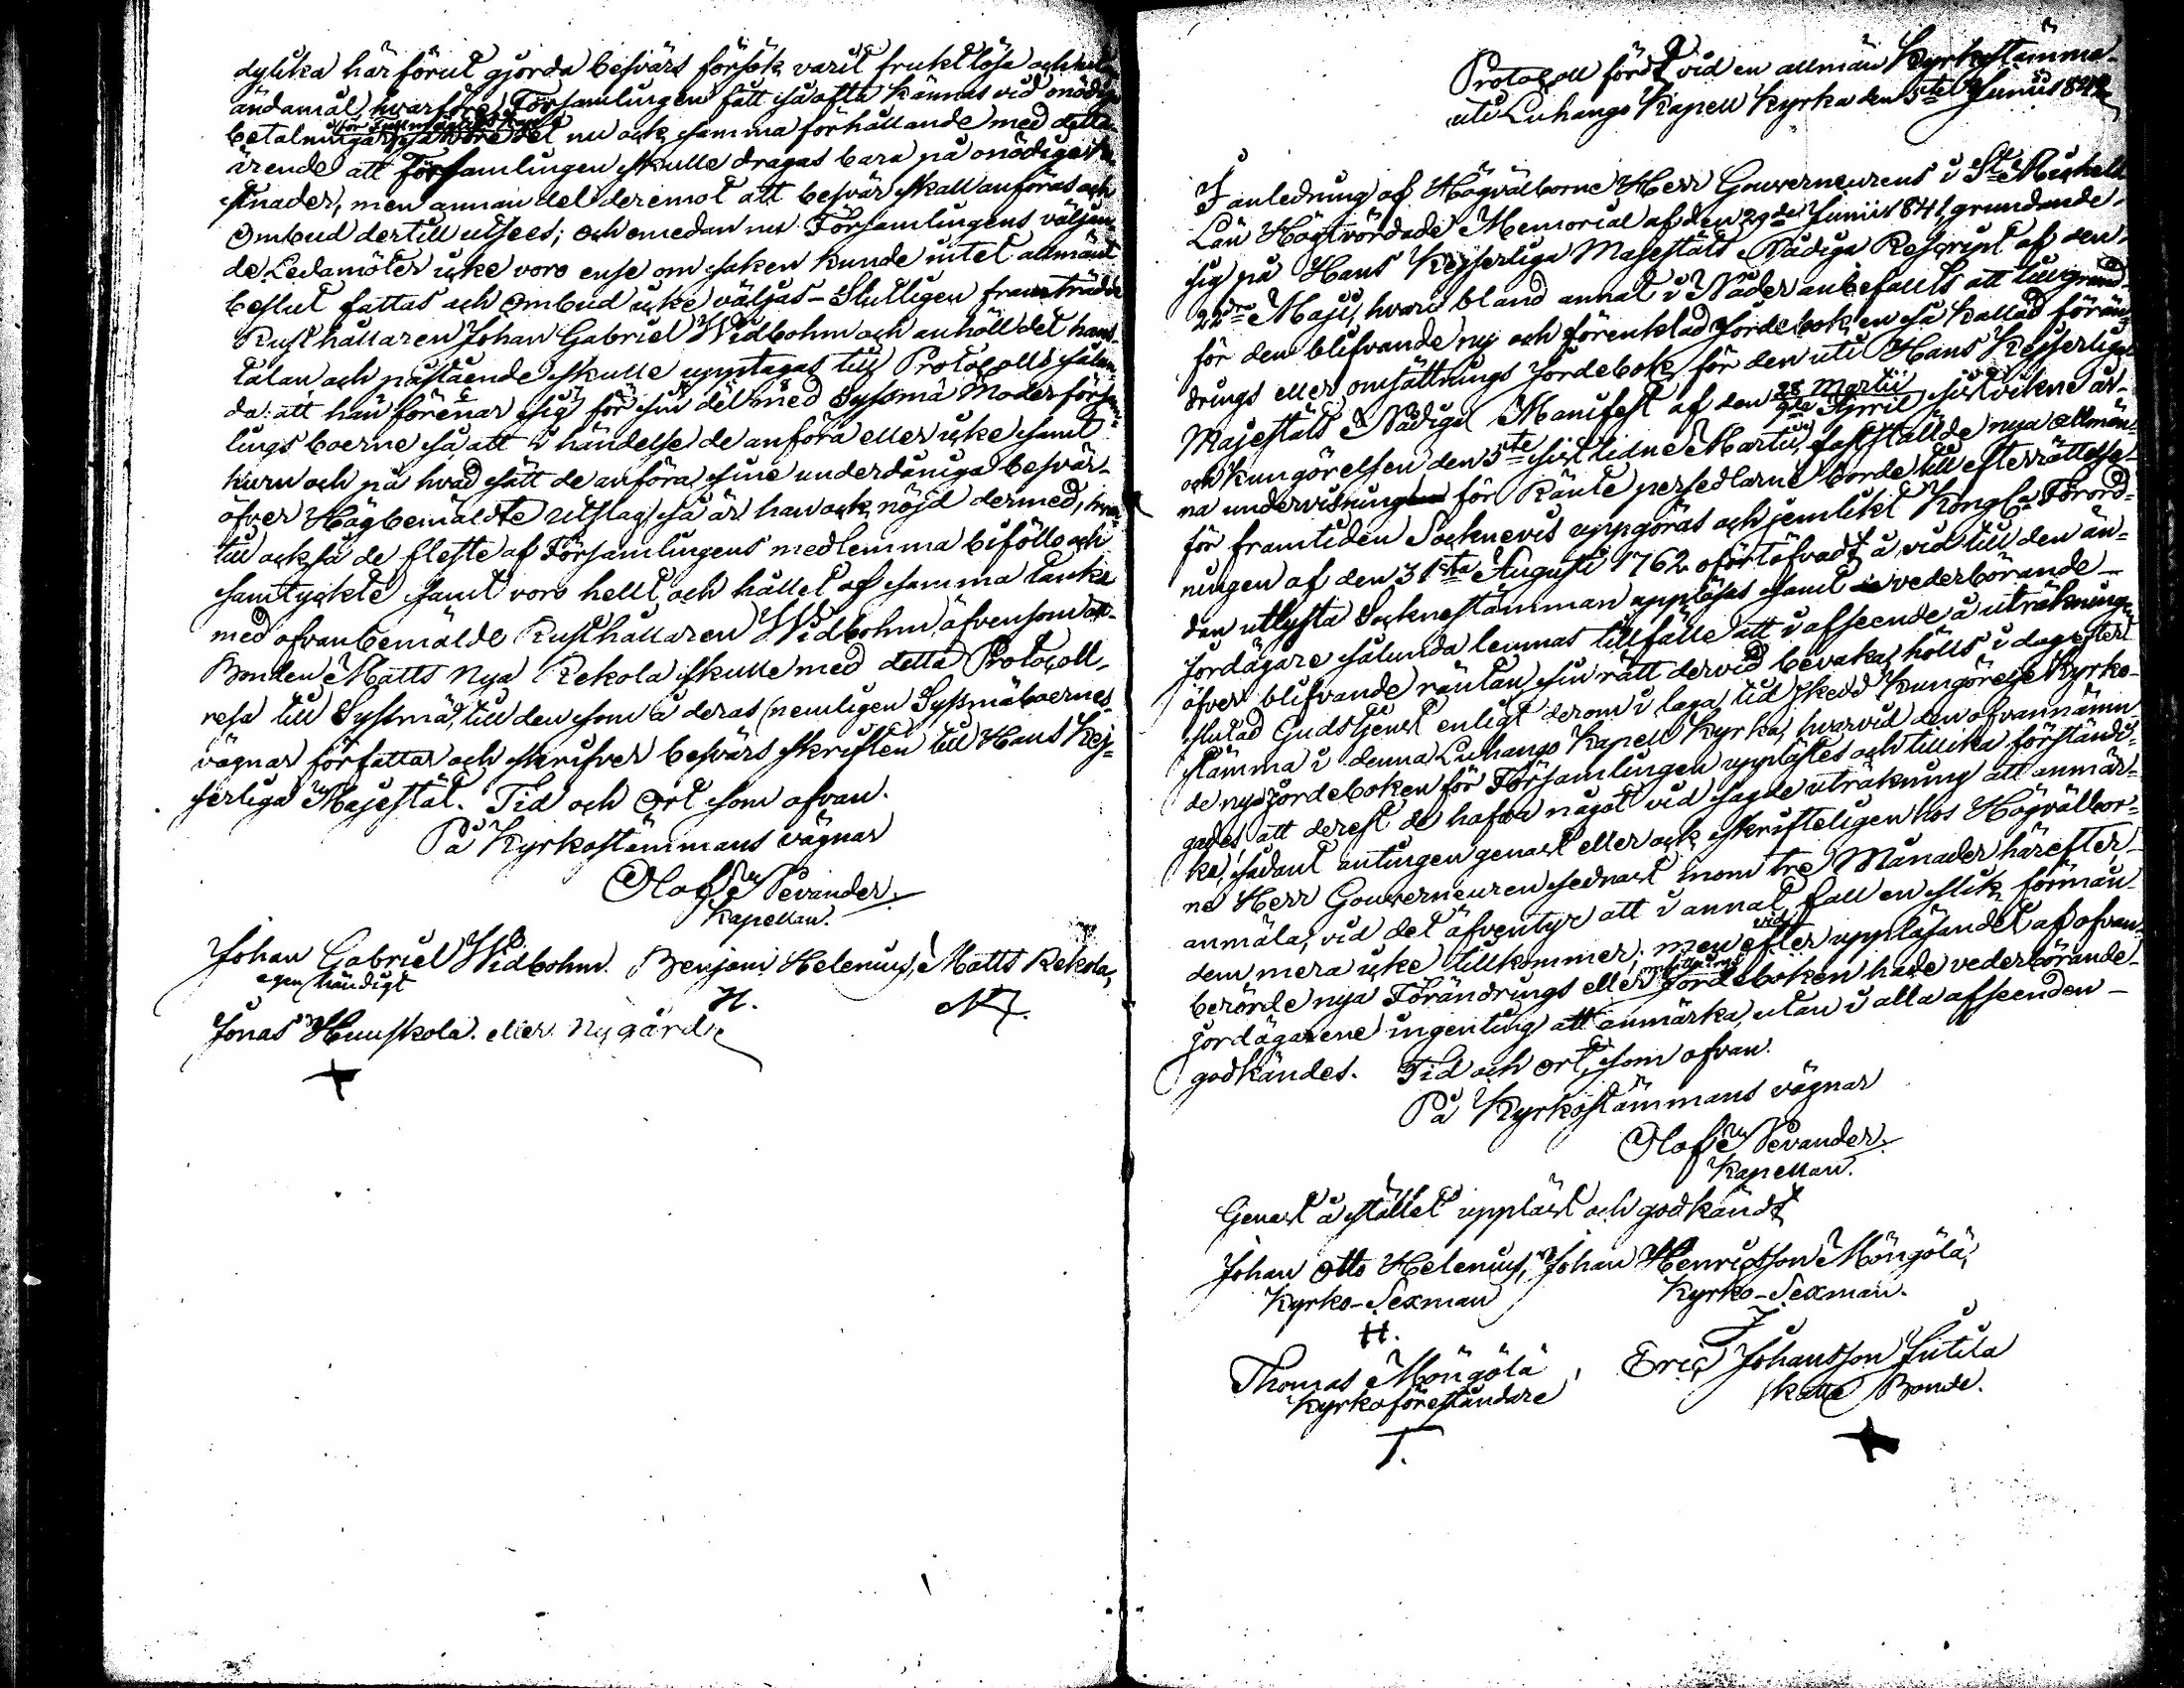 dylika här förut gjorda besvärs försök varit fruktlösa och utan
ändamål, hvarföre Församlingen fått så ofta kännas vid onödiga
betalningar, så vore det nu ock samma förhållande med detta
ärende att Församlingen skulle dragas bara på onödiga ko-
stnader, men annan del deremot att besvär skall anföras och
Ombud dertill utsees; och emedan nu Församlingens väljan-
de Ledamöter icke voro ense om saken kunde intet allmänt
beslut fattas och Ombud icke väljas – Slutligen framträdde
Rusthållaren Johan Gabriel Widbohm och anhöll det hans
talan och påstående skulle upptagas till Protocolls sålun-
da: att han förenar sig för sin del med Syssmä Moderförsam-
lings boerne så att i händelse de anföra eller icke samt
huru och på hvad sätt de anföra sine underdåniga besvär
öfver Högbemäldte utslag, så är han ock nöjd dermed, hvar-
till också de fleste af Församlingens medlemma biföllo och
samtyckte samt voro hellt och hållet af samma tanke
med ofvanbemälde Rusthållaren Widbohm, äfvensom att
Bonden Matts Nya Rekola skulle med detta Protocoll
resa till Syssmä, till den som å deras (nemligen Syssmäboernes)
vägnar författar och skrifver besvärs skriften till Hans Kej-
serliga Majestät. Tid och Ort som ofvan.
På Kyrkostämmans vägnar
Olof Nevander
Kapellan.
Johan Gabriel Widbohm. Benjam Helenius, Matts Rekola,
egen händigt H.
Jonas Huuskola. eller Nygård
Protocoll fördt vid en allmän Kyrkostämma
uti Luhango Kapell Kyrka den 5te Junii 1842
I anledning af Högvälborne Herr Gouverneurens i St Michels
Län Högtvördade Memorial af den 29de Junii 1841, grundande
sig på Hans Kejserliga Majestäts Nådiga Rescript af den
22dra Maji, hvari bland annat i Nåder anbefalts att till grund
för den blifvande ny och förenklad Jordebok, en så kallad förän-
drings eller omsättnings Jordebok, för den uti Hans Kejserliga
Majestäts Nådiga Manifest af den 28 Martii
9de April sistvikne år
och Kungörelsen den 5te sistlidne Martii, fastställde nya allmän-
na undervisning för Ränte persedlarne borde till efterrättelse
för framtiden Sockneviis uppgöras och jemlikt Kongl:a Förord-
ningen af den 31sta Augusti 1762 oförtöfvadt å, vid till den än-
dan utlysta Socknestämman uppläsas samt vederbörande
Jordägare sålunda lemnas tillfälle att i afseende å uträkningen
öfver blifvande räntan, sin rätt dervid bevaka, hölls i dag efter
slutad Gudstjenst enligt derom i laga tid skedd Kungörelse Kyrko-
stämma i denna Luhango Kapell Kyrka, hvarvid den ofvannämn-
de nya jordeboken för Församlingen upplästes och tillika förständi-
gades, att derest de hafva något vid sagde uträkning att anmär-
ka, sådant antingen genast eller ock skrifteligen hos Högvälbor-
ne Herr Gouverneuren sednast inom tre Månader härefter,
anmäla, vid det äfventyr att i annat fall en slik förmån
dem mera icke tillkommer; men vid
efter uppläsandet af ofvan
berörde nya Förändrings eller Jordeboken hade vederbörande
jordägarene ingenting att anmärka, utan i alla afseenden
godkändes. Tid och ort, som ofvan.
På Kyrkostämmans vägnar
Olof Nevander
Kapellan.
Genast å stället uppläst och godkändt
Johan Otto Helenius, Johan Henricsson Möngölä,
Kyrko-Sexman Kyrko-Sexman.
H. J
Thomas Möngölä, Eric Johansson Jutila
Kyrkoföreståndare skatte Bonde.
T.